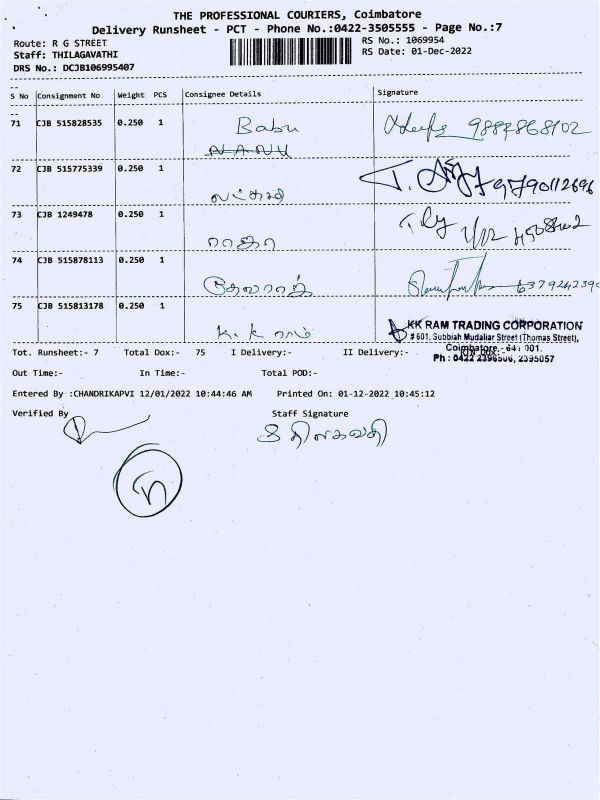 THE PROFESSIONAL COURIERS, Coimbatore
Delivery Runsheet - PCT - Phone No.:0422-3505555 - Page No.:7
Route: R G STREET
RS No.: 1069954
Staff: THILAGAVATHI
RS Date: 01-Dec-2022
DRS No.: DCJB106995407
S No Consignment No Weight PCS Consignee Details Signature
71 CJB 515828535 0.250 1 Babu
72 CJB 515775339 0.250 1 லட்சுமி 9790112696
73 CJB 1249478 0.250 1 ராதா
74 CJB 515878113 0.250 1
75 CJB 515813178 0.250 1 K. K ராம்
KK RAM TRADING CORPORATION
# 601, Subbiah Mudaliar Street (Thomas Street),
Coimbatore - 641 001.
Ph : 0422 2396506, 2395057
Tot. Runsheet:- 7 Total Dox:- 75 I Delivery:- II Delivery:-
Out Time:- In Time:- Total POD:-
Entered By :CHANDRIKAPVI 12/01/2022 10:44:46 AM Printed On: 01-12-2022 10:45:12
Verified By Staff Signature
திலகவதி